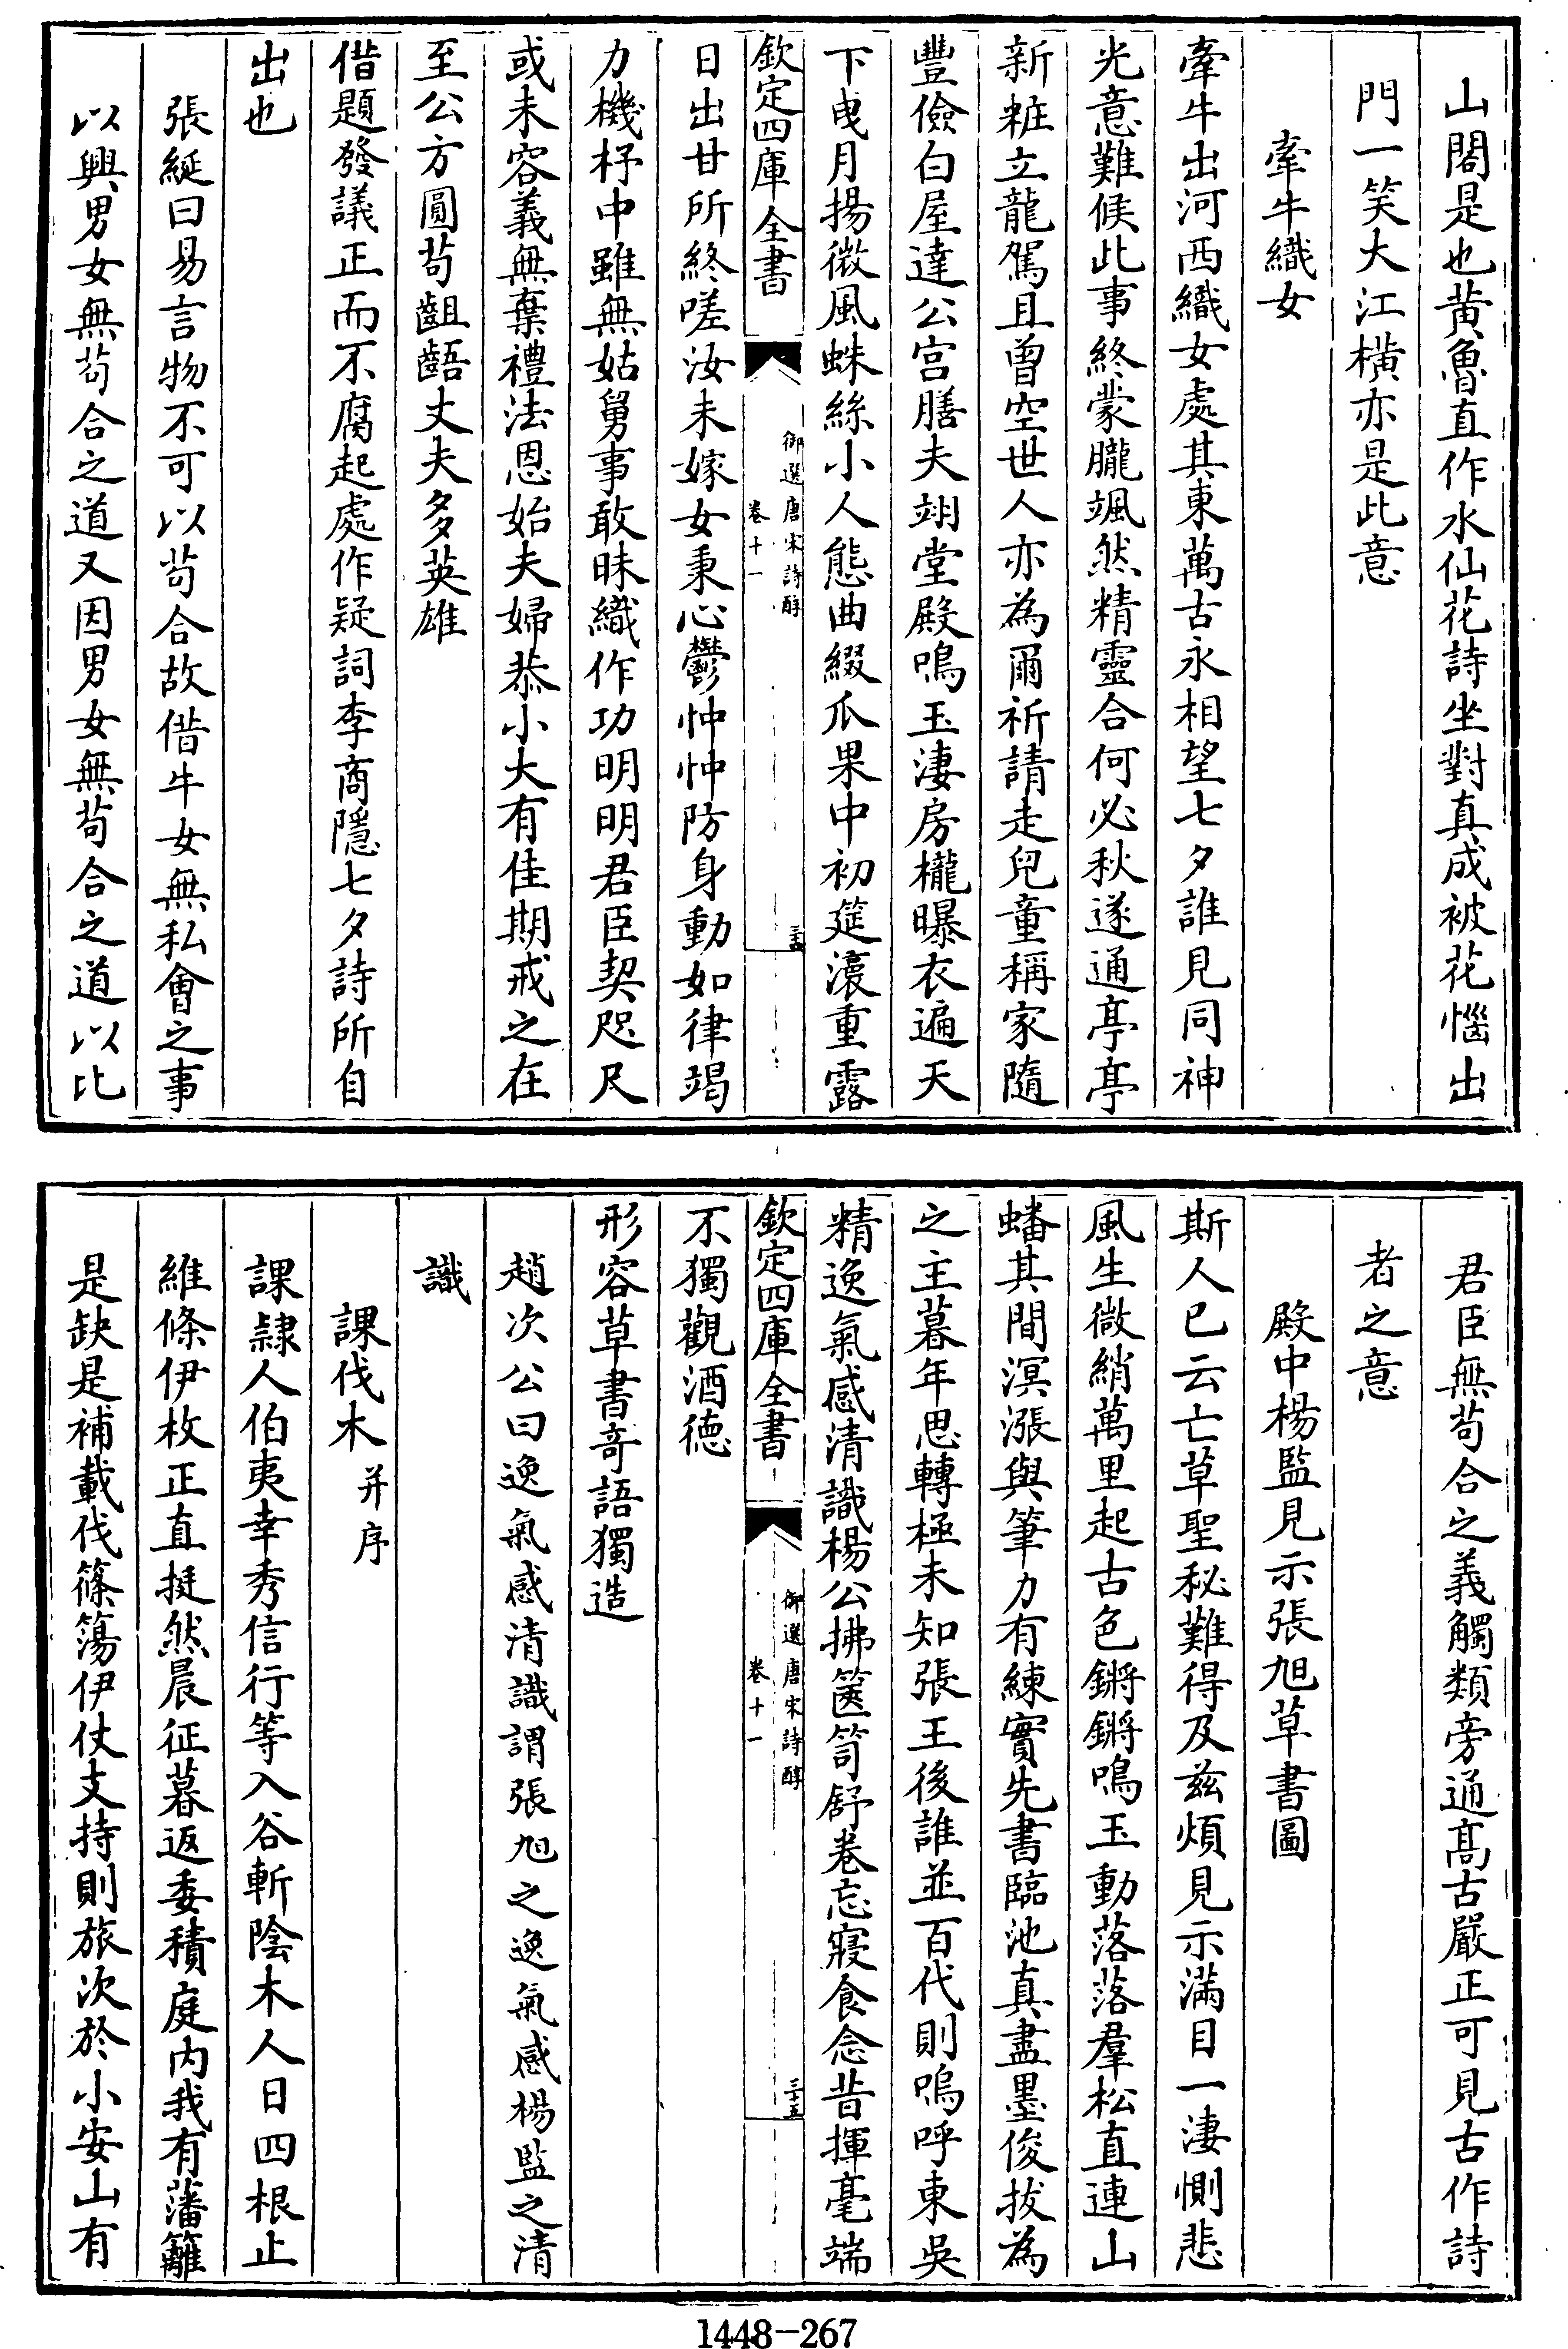 山閣是也黄魯直作水仙花詩坐對真成被花惱出
門一笑大江横亦是此意
牽牛織女
牽牛出河西織女處其東萬古永相望七夕誰見同神
光意難候此事終蒙朧颯然精靈合何必秋遂通亭亭
新粧立龍駕且曾空世人亦為爾祈請走兒童稱家隨
豐儉白屋達公宫膳夫翊堂殿鳴玉淒房櫳曝衣遍天
下曵月揚微風蛛絲小人態曲綴瓜果中初筵裛重露
欽定四庫全書
御選唐宋詩醇
卷十一
三十四
日出甘所終嗟汝未嫁女秉心鬱忡忡防身動如律竭
力機杼中雖無姑舅事敢昧織作功明明君臣契咫尺
或未容義無棄禮法恩始夫婦恭小大有佳期戒之在
至公方圓苟齟齬丈夫多英雄
借題發議正而不腐起處作疑詞李商隱七夕詩所自
出也
張綖曰易言物不可以苟合故借牛女無私會之事
以興男女無苟合之道又因男女無苟合之道以比
君臣無苟合之義觸類旁通髙古嚴正可見古作詩
者之意
殿中楊監見示張旭草書圖
斯人已云亡草聖秘難得及兹煩見示滿目一淒惻悲
風生微綃萬里起古色鏘鏘鳴玉動落落羣松直連山
蟠其間溟漲與筆力有練實先書臨池真盡墨俊拔為
之主暮年思轉極未知張王後誰並百代則嗚呼東吳
精逸氣感清識楊公拂篋笥舒卷忘寢食念昔揮毫端
欽定四庫全書
御選唐宋詩醇
卷十一
三十五
不獨觀酒徳
形容草書竒語獨造
趙次公曰逸氣感清識謂張旭之逸氣感楊監之清
識
課伐木并序
課隷人伯夷幸秀信行等入谷斬陰木人日四根止
維條伊枚正直挺然晨征暮返委積庭内我有藩籬
是缺是補載伐篠簜伊仗支持則旅次於小安山有
1448－267